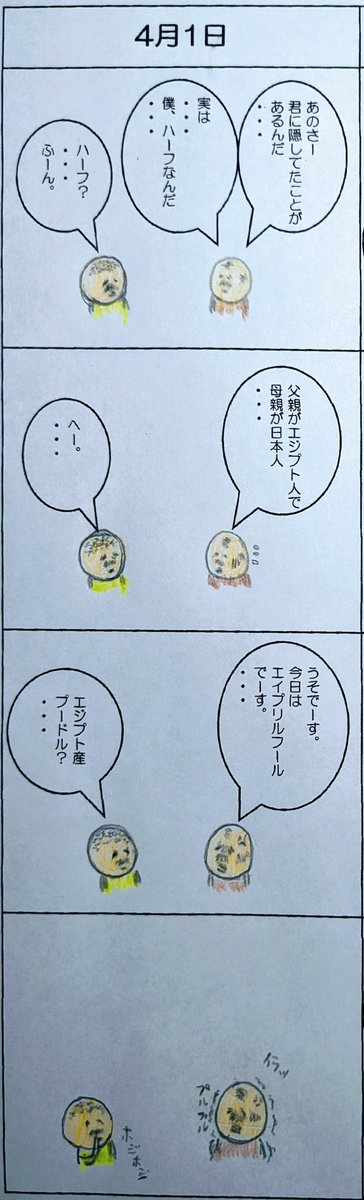 4月1日
あのさー
君に隠してたことが
あるんだ
・・・
実は
・・・
僕、ハーフなんだ
・・・
ハーフ?
・・・
ふーん。
父親がエジプト人で
母親が日本人
・・・
へー。
・・・
うそでーす。
今日は
エイプリルフール
でーす。
・・・
エジプト産
プードル?
・・・
イラッ
プルプル
ホジホジ